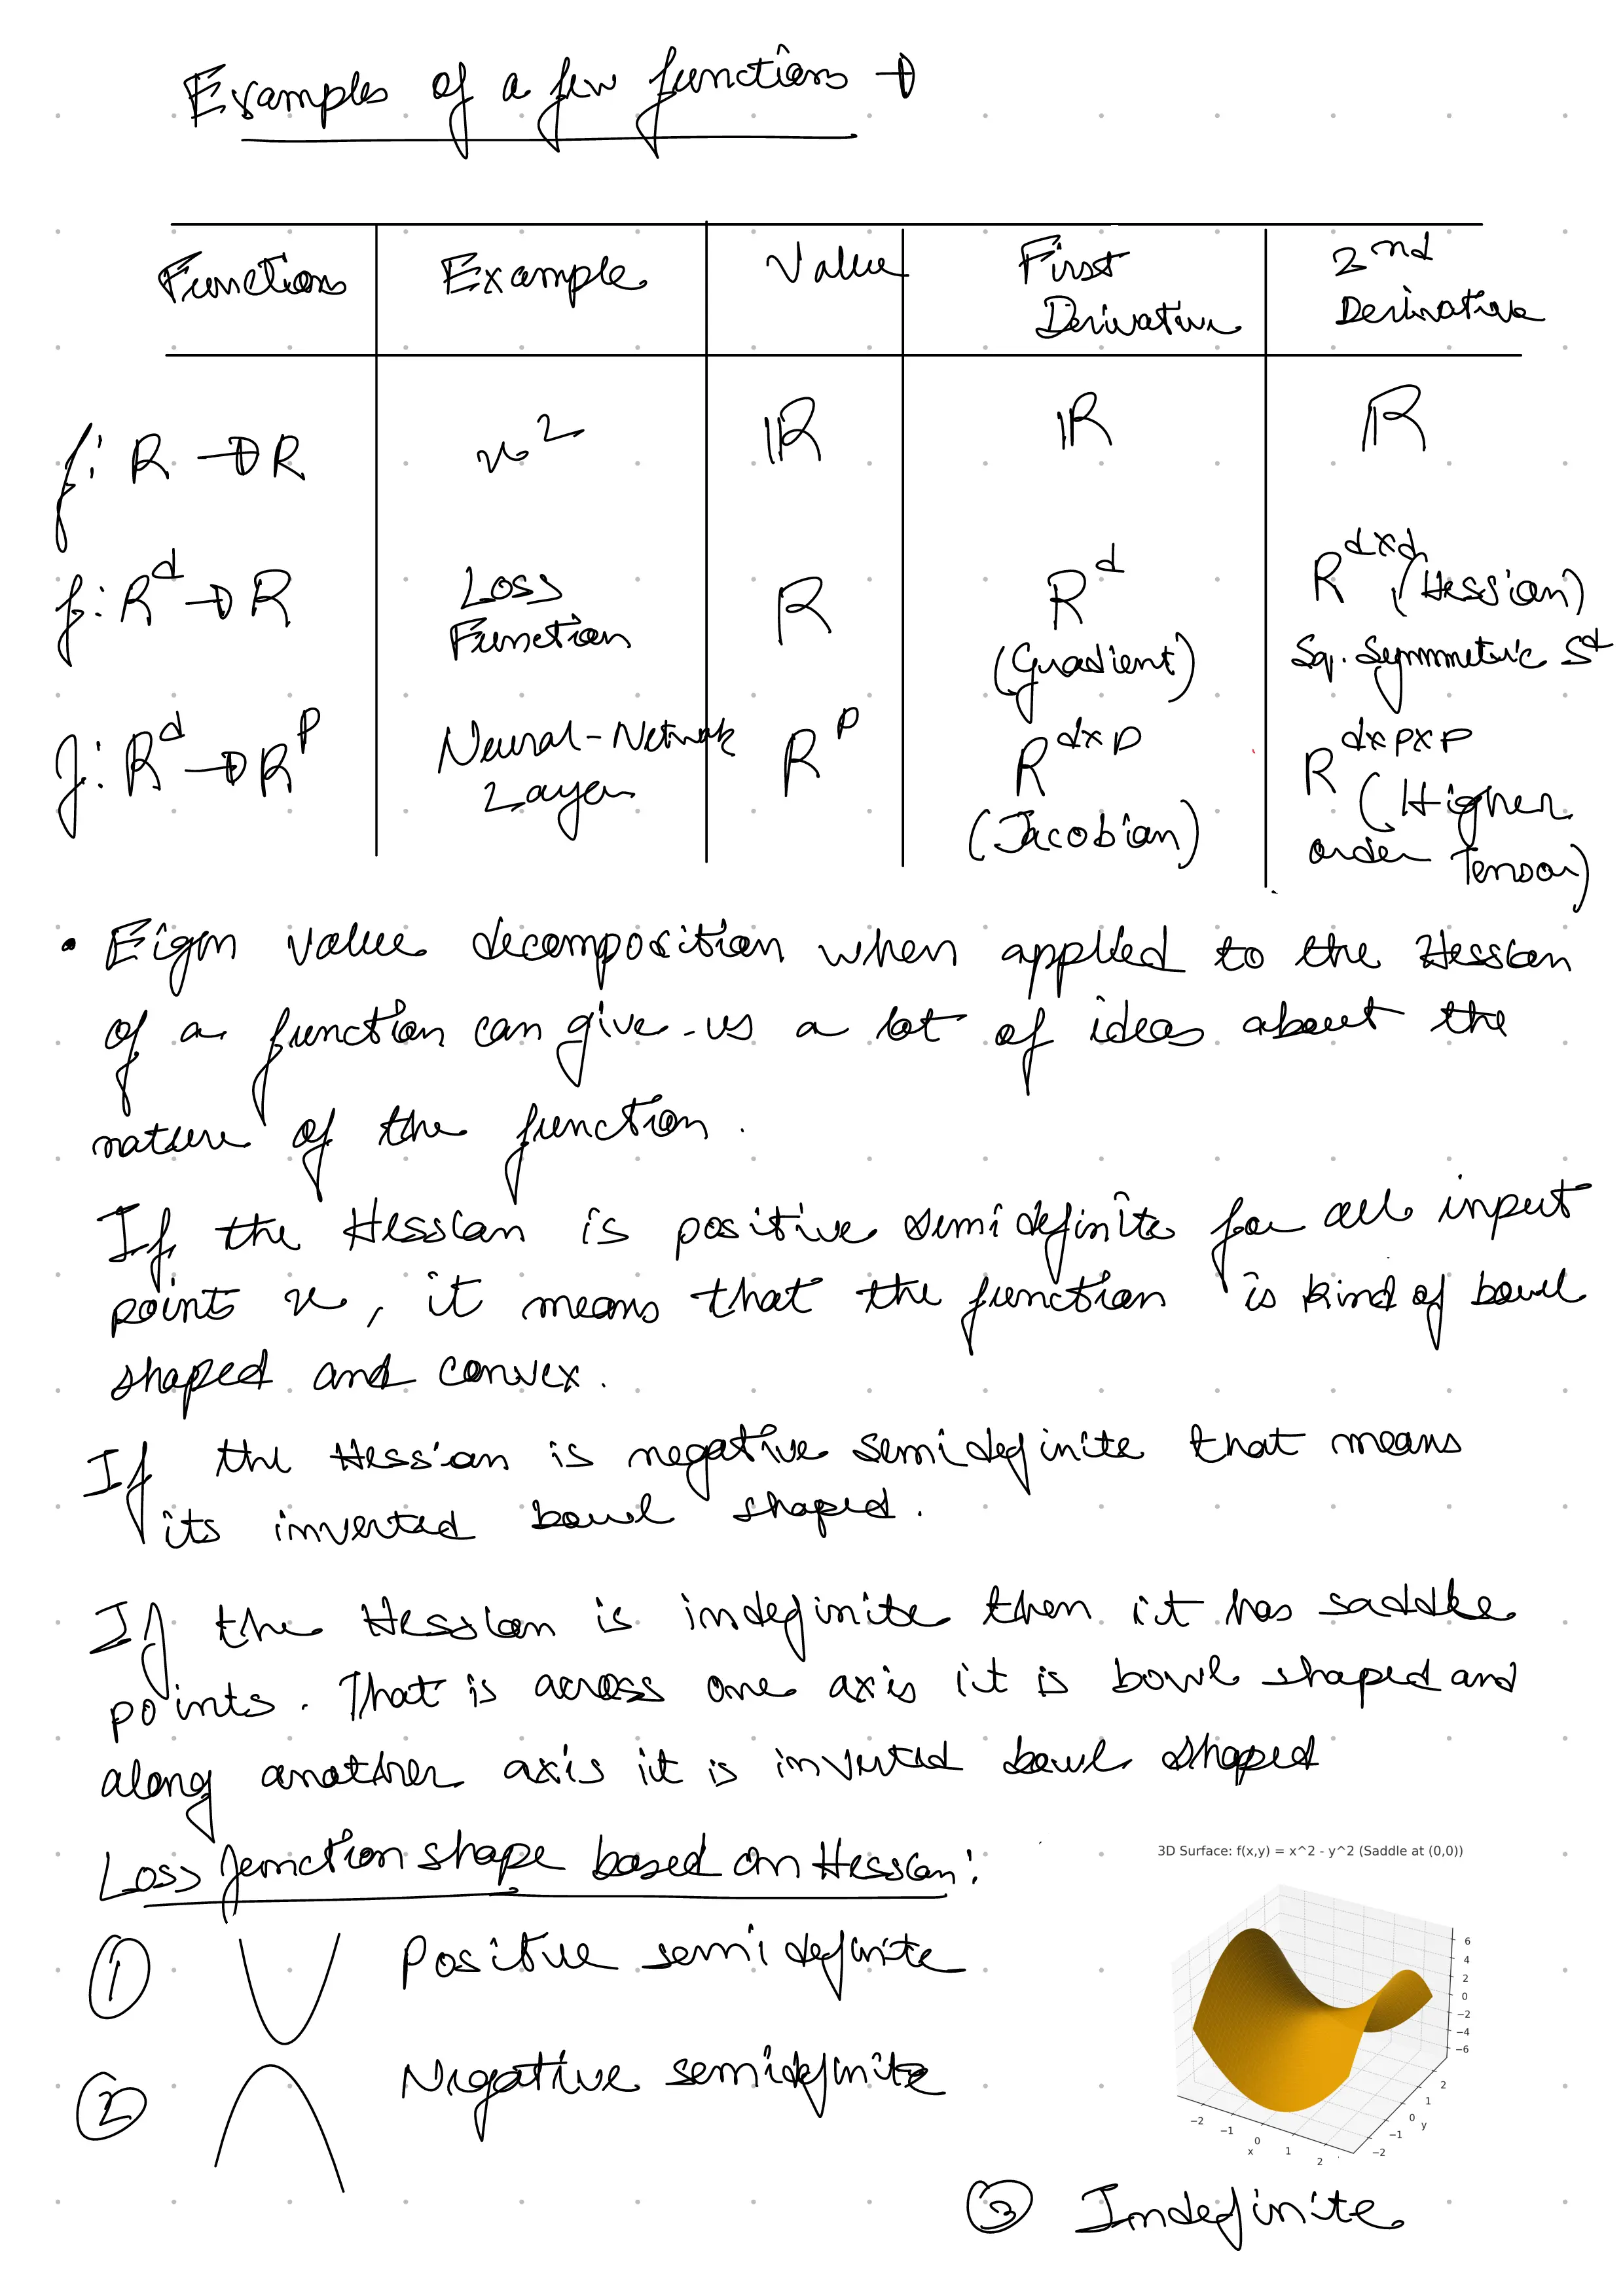 Examples of a few functions →
Functions | Example | Value | First Derivative | 2nd Derivative
f: R → R | x² | ℝ | ℝ | ℝ
f: R^d → R | Loss Function | R | R^d (Gradient) | R^{d×d} (Hessian) Sq. Symmetric S^d
f: R^d → R^p | Neural-Network Layer | R^p | R^{d×p} (Jacobian) | R^{d×p×p} (Higher order Tensor)
• Eigen value decomposition when applied to the Hessian
of a function can give us a lot of ideas about the
nature of the function.
If the Hessian is positive semidefinite for all input
points x, it means that the function is kind of bowl
shaped and convex.
If the Hessian is negative semidefinite that means
its inverted bowl shaped.
If the Hessian is indefinite then it has saddle
points. That is across one axis it is bowl shaped and
along another axis it is inverted bowl shaped
Loss function shape based on Hessian:
① Positive semidefinite
② Negative semidefinite
3D Surface: f(x,y) = x^2 - y^2 (Saddle at (0,0))
6
4
2
0
−2
−4
−6
−2 −1 0 1 2
x
−2 −1 0 1 2
y
③ Indefinite